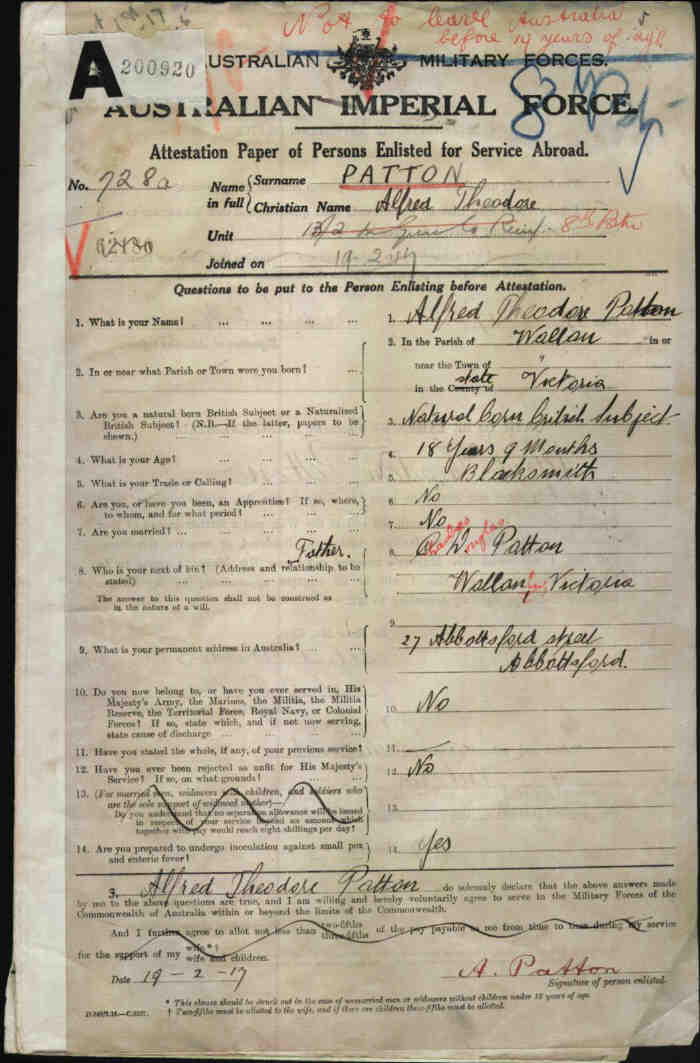 Not to leave Australia
before 19 years of age
A 200920
AUSTRALIAN MILITARY FORCES.
AUSTRALIAN IMPERIAL FORCE.
Attestation Paper of Persons Enlisted for Service Abroad.
No. 728a
Name in full { Surname PATTON
Christian Name Alfred Theodore
Unit
Joined on 19-2-17
Questions to be put to the Person Enlisting before Attestation.
1. What is your Name? ... ... ... ... 1. Alfred Theodore Patton
2. In or near what Parish or Town were you born? ... 2. In the Parish of Wallan in or
near the Town of "
in the County of state Victoria
3. Are you a natural born British Subject or a Naturalized
British Subject? (N.B.—If the latter, papers to be
shown.) ... ... ... 3. Natural born British Subject
4. What is your Age? ... ... ... ... 4. 18 Years 9 Months
5. What is your Trade or Calling? ... ... ... 5. Blacksmith
6. Are you, or have you been, an Apprentice? If so, where,
to whom, and for what period? ... ... ... 6. No
7. Are you married? ... ... ... ... 7. No
8. Who is your next of kin? (Address and relationship to be
stated) ... ... ... ... Father. 8. C. D. Patton
Wallan Victoria
The answer to this question shall not be construed as
in the nature of a will.
9. What is your permanent address in Australia? ... ... 9. 27 Abbottsford street
Abbottsford.
10. Do you now belong to, or have you ever served in, His
Majesty's Army, the Marines, the Militia, the Militia
Reserve, the Territorial Force, Royal Navy, or Colonial
Forces? If so, state which, and if not now serving,
state cause of discharge ... ... ... ... 10. No
11. Have you stated the whole, if any, of your previous service? 11. —
12. Have you ever been rejected as unfit for His Majesty's
Service? If so, on what grounds? ... ... 12. No
13. (For married men, widowers with children, and soldiers who
are the sole support of widowed mother)—
Do you understand that no separation allowance will be issued
in respect of your service beyond an amount which
together with pay would reach eight shillings per day? 13.
14. Are you prepared to undergo inoculation against small pox
and enteric fever? ... ... ... 14. Yes
I, Alfred Theodore Patton do solemnly declare that the above answers made
by me to the above questions are true, and I am willing and hereby voluntarily agree to serve in the Military Forces of the
Commonwealth of Australia within or beyond the limits of the Commonwealth.
And I further agree to allot not less than two-fifths three-fifths of the pay payable to me from time to time during my service
for the support of my wife*† wife and children.
Date 19-2-17 A. Patton
Signature of person enlisted.
* This clause should be struck out in the case of unmarried men or widowers without children under 18 years of age.
† Two-fifths must be allotted to the wife, and if there are children three-fifths must be allotted.